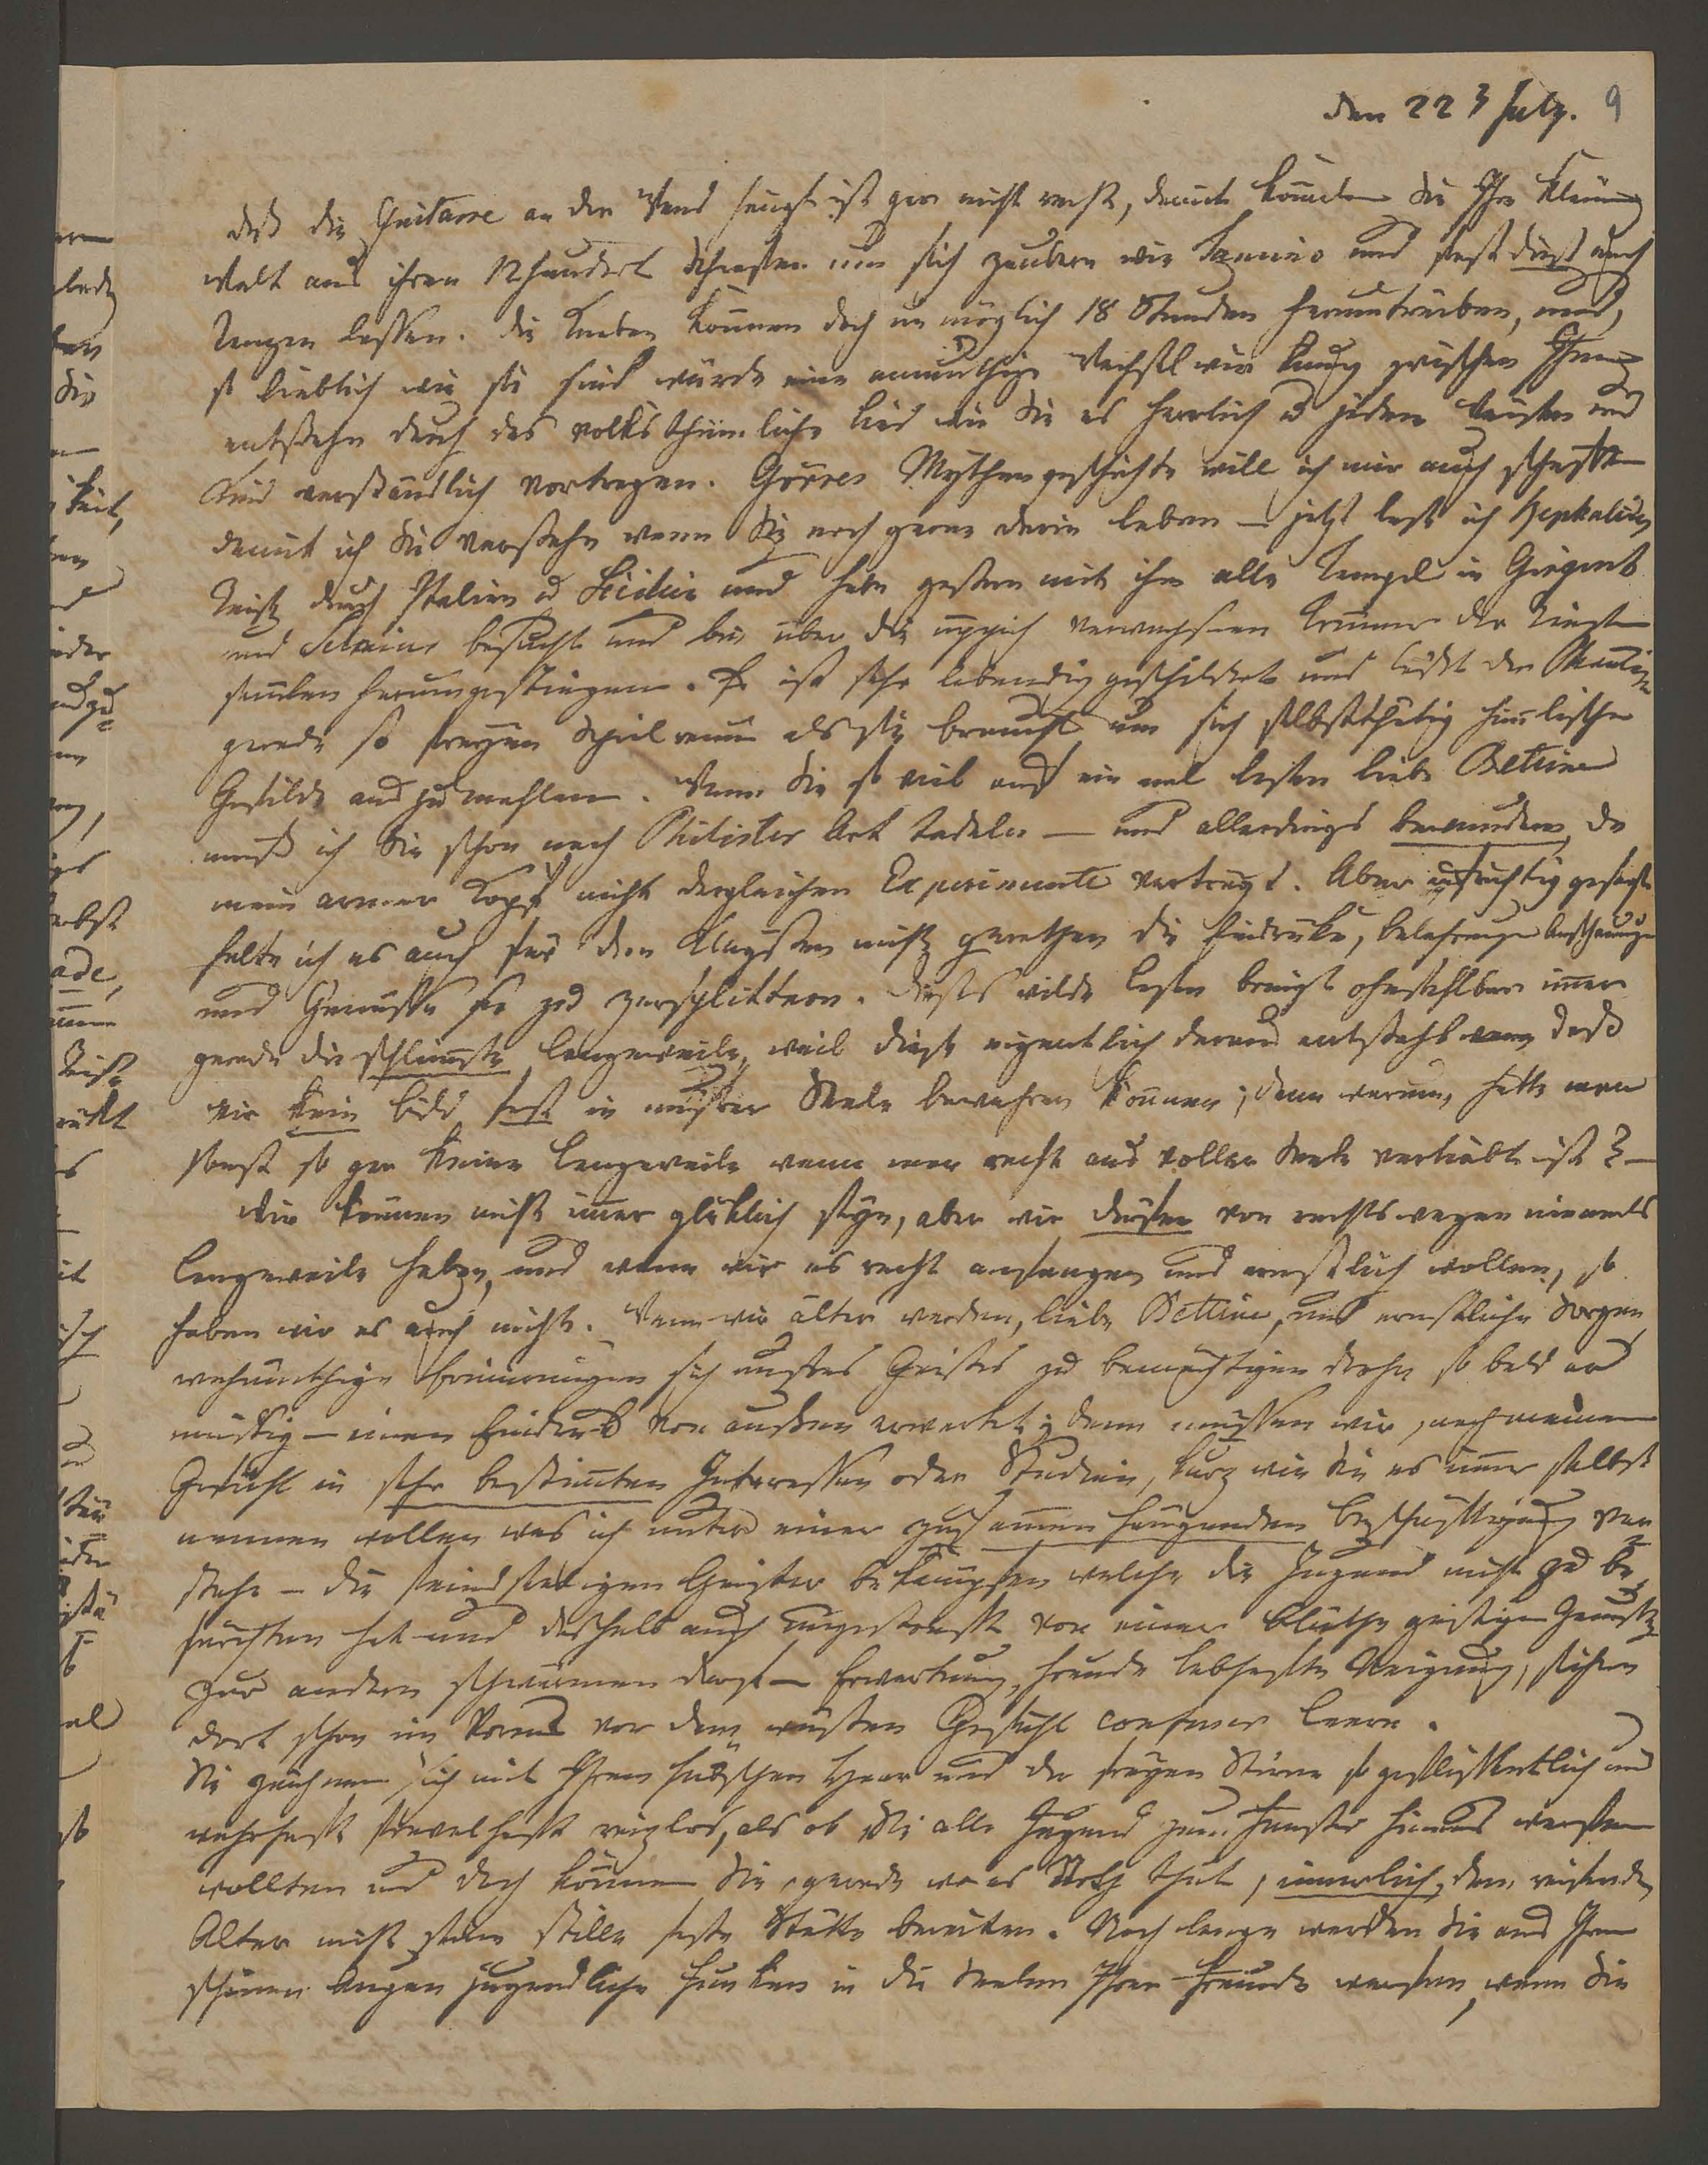 den 22 3 July. 9
daß die Guitarre an der Wand hängt ist gar nicht recht, damit könnten Sie Ihre kleine
Welt aus ihren 12hundert um sich zaubern wie Tamino und sie auch
tanzen lassen. Die Knaben können doch unmöglich 18 Stunden herumtreiben, und,
so lieblich wie sie sind würde eine anmuthige Wechsel zwischen Ihnen
entstehn durch das volksthümliche Lied wie Sie es herrlich u jedem und
Kind verständlich vortragen. Görres Mythengeschichte will ich mir auch schaffen
damit ich Sie verstehe wenn Sie noch gerne darin leben – jetzt lese ich Kephalides
Reise durch Italien u Sicilien und habe gestern mit ihm alle Tempel in Girgent
und Selinus besucht und bin über die üppich verwachsenen Trümmer der Riesen
saeulen herumgestiegen. Er ist sehr lebendig geschildert und läßt der Phantasie
grade so freyen Spielraum als sie braucht um sich selbstthätig himlische
Gefilde aus zu mahlen. Wenn Sie so viel auf ein mal lesen liebe Bettine
muß ich Sie schon nach Philister Art tadeln – und allerdings bewundern, da
mein armer Kopf nicht dergleichen Experimente vertragt. Aber aufrichtig gesagt
halte ich es auch für den Klügsten nicht gerathen die Eindrücke, Belehrungen Anschauungen
und Genüsse so zu zersplittern. Dieses wilde Lesen bringt ohnfehlbar immer
gerade die schlimste Langeweile, weil diese eigentlich daraus entsteht daß
wir kein Bild fest in unsrer Seele bewahren können; denn warum, hätte man
sonst so gar keine Langeweile wenn man recht aus voller Seele verliebt ist? –
Wir können nicht immer glücklich seyn, aber wir dürfen von rechtswegen niemals
Langeweile haben, und wenn wir es recht anfangen und ernstlich wollen, so
haben wir es auch nicht. Wenn wir älter werden, liebe Bettine, und ernstliche Sorgen
wehmüthige Erinnerungen sich unsres Geistes zu bemächtigen drohn so bald er
müssig – einen Eindruck von außen erwartet; dann müssen wir, nach meinem
Gefühl in sehr bestimten Interessen oder Studien, kurz wie Sie es immer selbst
nennen wollen was ich unter einer zusammen hängenden Beschäftigung ver
stehe – die feindseeligen Geister bekämpfen welche die Jugend nicht zu be
fürchten hat und deshalb auch ungestraft von einer Blüthe geistigen Genusses
zur andern schwärmen darf – Erwartung, Freude lebhafte Neigung, sichern
dort schon im Voraus vor dem wüsten Gefühl confuser Leere.
Sie zeichnen sich mit Ihren hübschen Haar und der freyen Stirne so geflissentlich und
wahrhaft frevelhaft reizlos, als ob Sie alle Jugend zum Fenster hinaus werfen
wollten und doch können Sie, gerade wo es Noth thut, innerlich, dem
Alter nicht seine stille feste Stätte bereiten. Noch lange werden Sie aus Ihren
schönen Augen jugendliche Funken in die Seelen Ihrer Freunde werfen, wenn Sie